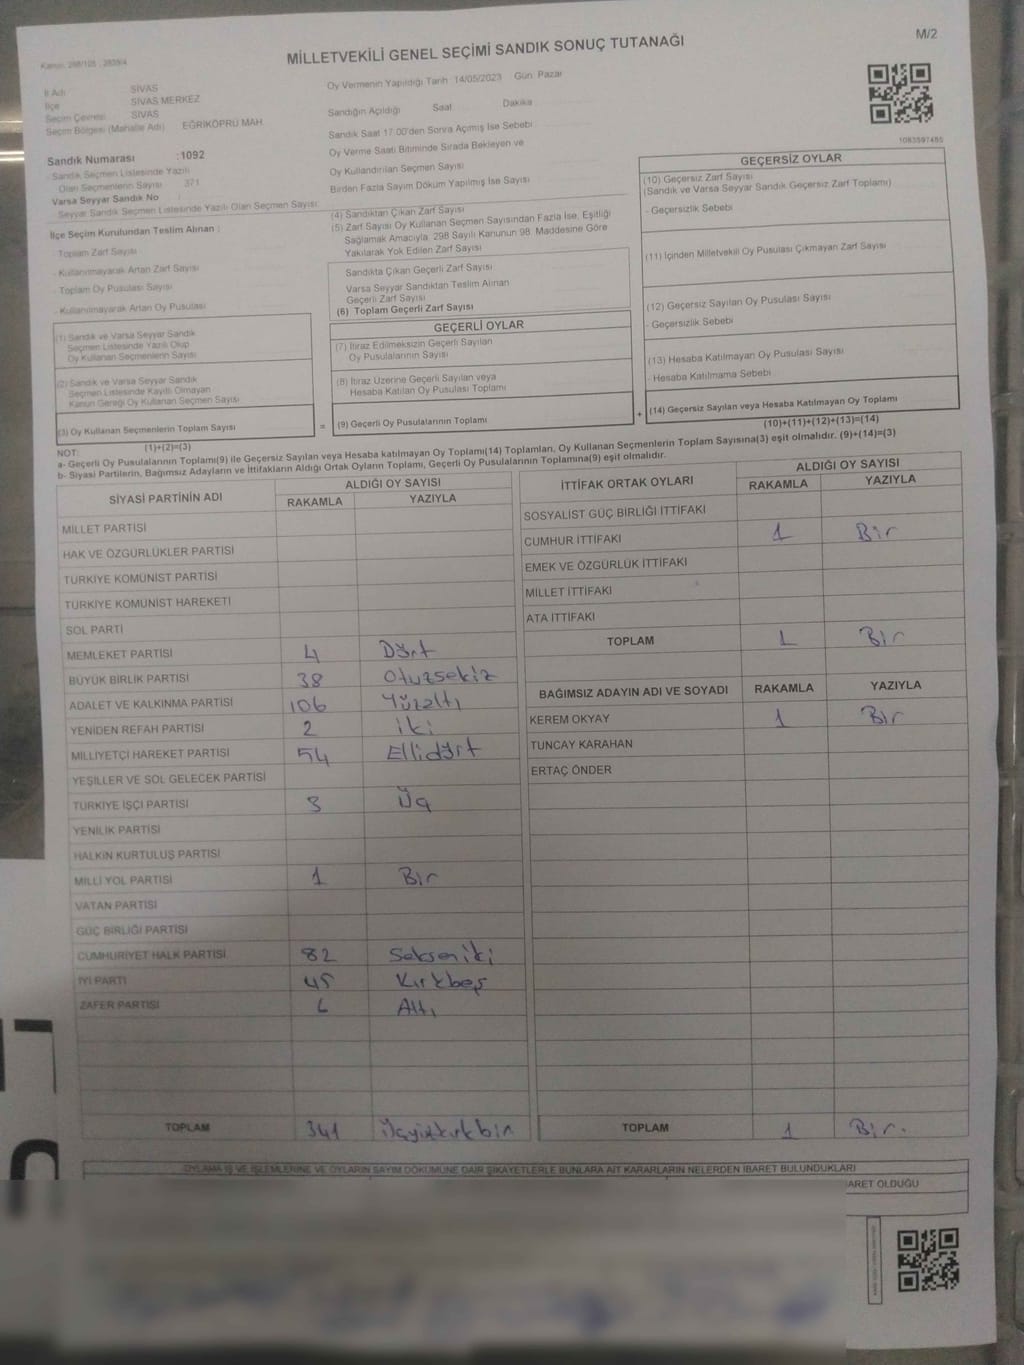 M/2
MİLLETVEKİLİ GENEL SEÇİMİ SANDIK SONUÇ TUTANAĞI
İl Adı SİVAS
İlçe SİVAS MERKEZ
Seçim Çevresi SİVAS
Seçim Bölgesi (Mahalle Adı) EĞRİKÖPRÜ MAH.
Oy Vermenin Yapıldığı Tarih :14/05/2023 Gün: Pazar
Sandığın Açıldığı Saat Dakika
Sandık Saat 17:00'den Sonra Açılmış İse Sebebi :
Oy Verme Saati Bitiminde Sırada Bekleyen ve
Oy Kullandırılan Seçmen Sayısı
Birden Fazla Sayım Döküm Yapılmış İse Sayısı
1083597485
Sandık Numarası :1092
- Sandık Seçmen Listesinde Yazılı
Olan Seçmenlerin Sayısı : 371
Varsa Seyyar Sandık No :
- Seyyar Sandık Seçmen Listesinde Yazılı Olan Seçmen Sayısı:
İlçe Seçim Kurulundan Teslim Alınan :
- Toplam Zarf Sayısı
- Kullanılmayarak Artan Zarf Sayısı
- Toplam Oy Pusulası Sayısı
- Kullanılmayarak Artan Oy Pusulası
(1) Sandık ve Varsa Seyyar Sandık
Seçmen Listesinde Yazılı Olup
Oy Kullanan Seçmenlerin Sayısı
(2) Sandık ve Varsa Seyyar Sandık
Seçmen Listesinde Kayıtlı Olmayan
Kanun Gereği Oy Kullanan Seçmen Sayısı
(3) Oy Kullanan Seçmenlerin Toplam Sayısı
(1)+(2)=(3)
(4) Sandıktan Çıkan Zarf Sayısı
(5) Zarf Sayısı Oy Kullanan Seçmen Sayısından Fazla İse, Eşitliği
Sağlamak Amacıyla, 298 Sayılı Kanunun 98. Maddesine Göre
Yakılarak Yok Edilen Zarf Sayısı
Sandıkta Çıkan Geçerli Zarf Sayısı
Varsa Seyyar Sandıktan Teslim Alınan
Geçerli Zarf Sayısı
(6) Toplam Geçerli Zarf Sayısı
GEÇERLİ OYLAR
(7) İtiraz Edilmeksizin Geçerli Sayılan
Oy Pusulalarının Sayısı
(8) İtiraz Üzerine Geçerli Sayılan veya
Hesaba Katılan Oy Pusulası Toplamı
= (9) Geçerli Oy Pusulalarının Toplamı
GEÇERSİZ OYLAR
(10) Geçersiz Zarf Sayısı
(Sandık ve Varsa Seyyar Sandık Geçersiz Zarf Toplamı)
- Geçersizlik Sebebi
(11) İçinden Milletvekili Oy Pusulası Çıkmayan Zarf Sayısı
(12) Geçersiz Sayılan Oy Pusulası Sayısı
- Geçersizlik Sebebi
(13) Hesaba Katılmayan Oy Pusulası Sayısı
- Hesaba Katılmama Sebebi
+ (14) Geçersiz Sayılan veya Hesaba Katılmayan Oy Toplamı
(10)+(11)+(12)+(13)=(14)
NOT:
a- Geçerli Oy Pusulalarının Toplamı(9) ile Geçersiz Sayılan veya Hesaba katılmayan Oy Toplamı(14) Toplamları, Oy Kullanan Seçmenlerin Toplam Sayısına(3) eşit olmalıdır. (9)+(14)=(3)
b- Siyasi Partilerin, Bağımsız Adayların ve İttifakların Aldığı Ortak Oyların Toplamı, Geçerli Oy Pusulalarının Toplamına(9) eşit olmalıdır.
SİYASİ PARTİNİN ADI ALDIĞI OY SAYISI
RAKAMLA YAZIYLA
MİLLET PARTİSİ
HAK VE ÖZGÜRLÜKLER PARTİSİ
TÜRKİYE KOMÜNİST PARTİSİ
TÜRKİYE KOMÜNİST HAREKETİ
SOL PARTİ
MEMLEKET PARTİSİ 4 Dört
BÜYÜK BİRLİK PARTİSİ 38 Otuzsekiz
ADALET VE KALKINMA PARTİSİ 106 Yüzaltı
YENİDEN REFAH PARTİSİ 2 iki
MİLLİYETÇİ HAREKET PARTİSİ 54 Ellidört
YEŞİLLER VE SOL GELECEK PARTİSİ
TÜRKİYE İŞÇİ PARTİSİ 3 Üç
YENİLİK PARTİSİ
HALKIN KURTULUŞ PARTİSİ
MİLLİ YOL PARTİSİ 1 Bir
VATAN PARTİSİ
GÜÇ BİRLİĞİ PARTİSİ
CUMHURİYET HALK PARTİSİ 82 Sekseniki
İYİ PARTİ 45 Kırkbeş
ZAFER PARTİSİ 6 Altı
TOPLAM 341 Üçyüzkırkbir
İTTİFAK ORTAK OYLARI ALDIĞI OY SAYISI
RAKAMLA YAZIYLA
SOSYALİST GÜÇ BİRLİĞİ İTTİFAKI
CUMHUR İTTİFAKI 1 Bir
EMEK VE ÖZGÜRLÜK İTTİFAKI
MİLLET İTTİFAKI
ATA İTTİFAKI
TOPLAM 1 Bir
BAĞIMSIZ ADAYIN ADI VE SOYADI RAKAMLA YAZIYLA
KEREM OKYAY 1 Bir
TUNCAY KARAHAN
ERTAÇ ÖNDER
TOPLAM 1 Bir.
OYLAMA İŞ VE İŞLEMLERİNE VE OYLARIN SAYIM DÖKÜMÜNE DAİR ŞİKAYETLERLE BUNLARA AİT KARARLARIN NELERDEN İBARET BULUNDUKLARI
BARET OLDUĞU